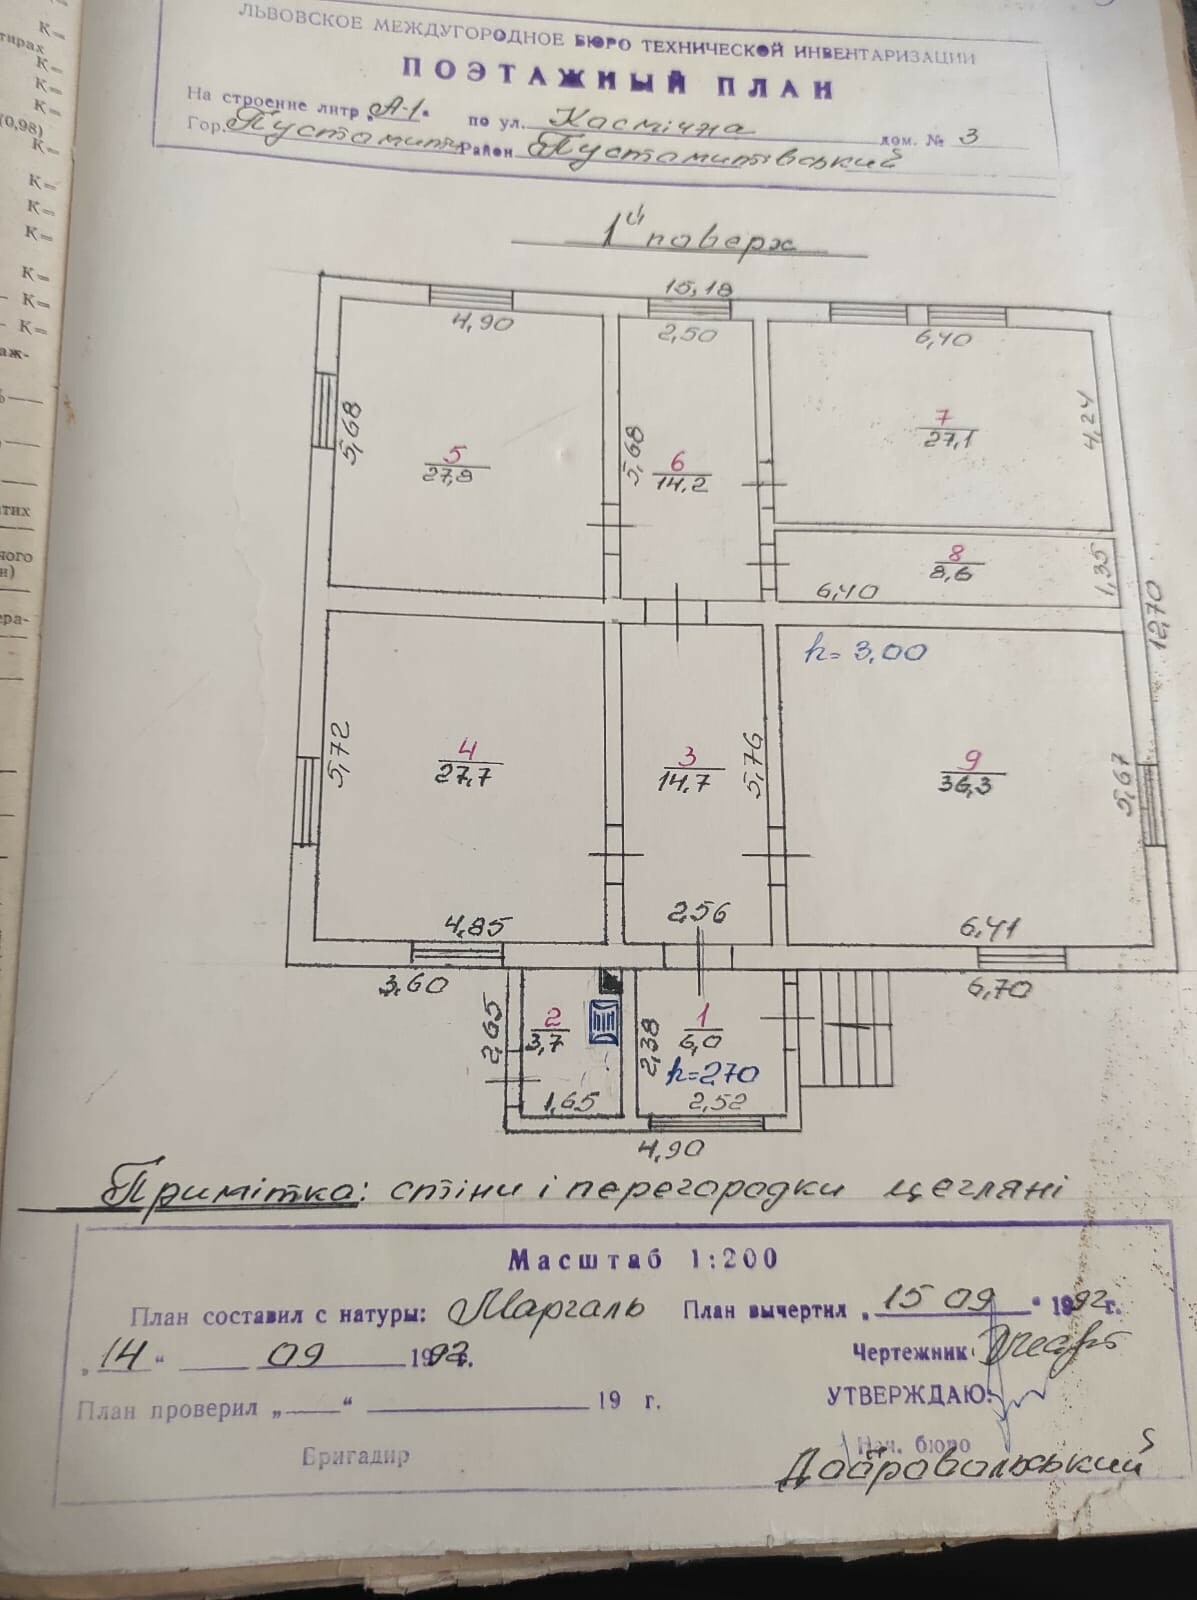 К=
тирах К=
К=
К=
(0,98) К=
К=
К=
К=
К=
К=
К=
аж-
тих
ного
н)
ера-
ЛЬВОВСКОЕ МЕЖДУГОРОДНОЕ БЮРО ТЕХНИЧЕСКОЙ ИНВЕНТАРИЗАЦИИ
ПОЭТАЖНЫЙ ПЛАН
На строение литр „А-1" по ул. Касмічна дом. № 3
Гор. Пустомити Район Пустомитівський
1й поверх
15,18
4,90 2,50 6,40
5,68 5 27,8 5,68 6 14,2 7 27,1 4,24
8 8,6 1,35
6,40
12,70
h= 3,00
5,72 4 27,7 3 14,7 5,76 9 36,3 5,67
4,85 2,56 6,41
3,60 6,70
2,65 2 3,7 2,38 1 6,0
h=2,70
1,65 2,52
4,90
Примітка: стіни і перегородки цегляні
Масштаб 1:200
План составил с натуры: Маргаль План вычертил „ 15 09 " 1992г.
„ 14 " 09 1992г.
Чертежник
План проверил „ " 19 г. УТВЕРЖДАЮ:
Бригадир Нач. бюро
Добровольський